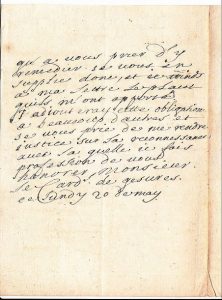 qu a vous prier d'y
remedier je vous en
suplie donc, et ce
a ma lettre la
quils m'ont apporté
j'adiouteray cette obligation
a beaucoup d'autres et
je vous prie de me rendre
justice sur la reconnoissance
avec la quelle ie fais
profession de vous
honorer Monsieur
le Card. de gesvres.
ce lundy 20 de may